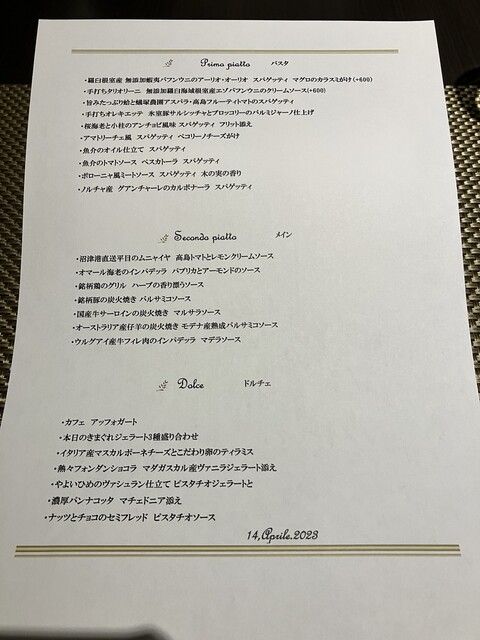 Primo piatto　パスタ
・羅臼根室産 無添加蝦夷バフンウニのアーリオ・オーリオ スパゲッティ マグロのカラスミがけ(+600)
・手打ちタリオリーニ 無添加羅臼海域根室産エゾバフンウニのクリームソース(+600)
・旨みたっぷり蛤と蟻塚農園アスパラ・高島フルーティトマトのスパゲッティ
・手打ちオレキエッテ 氷室豚サルシッチャとブロッコリーのパルミジャーノ仕上げ
・桜海老と小柱のアンチョビ風味 スパゲッティ フリット添え
・アマトリーチェ風 スパゲッティ ペコリーノチーズがけ
・魚介のオイル仕立て スパゲッティ
・魚介のトマトソース ペスカトーラ スパゲッティ
・ボローニャ風ミートソース スパゲッティ 木の実の香り
・ノルチャ産 グアンチャーレのカルボナーラ スパゲッティ
Secondo piatto　メイン
・沼津港直送平目のムニャイヤ 高島トマトとレモンクリームソース
・オマール海老のインパデッラ パプリカとアーモンドのソース
・銘柄鶏のグリル ハーブの香り漂うソース
・銘柄豚の炭火焼き バルサミコソース
・国産牛サーロインの炭火焼き マルサラソース
・オーストラリア産仔羊の炭火焼き モデナ産熟成バルサミコソース
・ウルグアイ産牛フィレ肉のインパデッラ マデラソース
Dolce　ドルチェ
・カフェ アッフォガート
・本日のきまぐれジェラート3種盛り合わせ
・イタリア産マスカルポーネチーズとこだわり卵のティラミス
・熱々フォンダンショコラ マダガスカル産ヴァニラジェラート添え
・やよいひめのヴァシュラン仕立て ピスタチオジェラートと
・濃厚パンナコッタ マチェドニア添え
・ナッツとチョコのセミフレッド ピスタチオソース
14,Aprile.2023